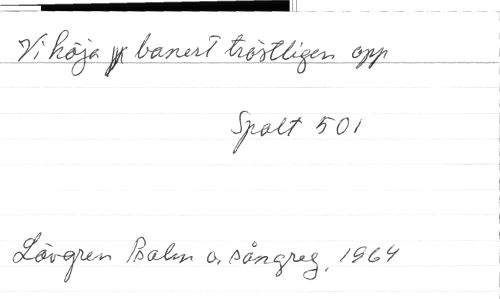 Vi höja banert tröstligen opp
Spalt 501
Lövgren Psalm o. sångreg. 1964